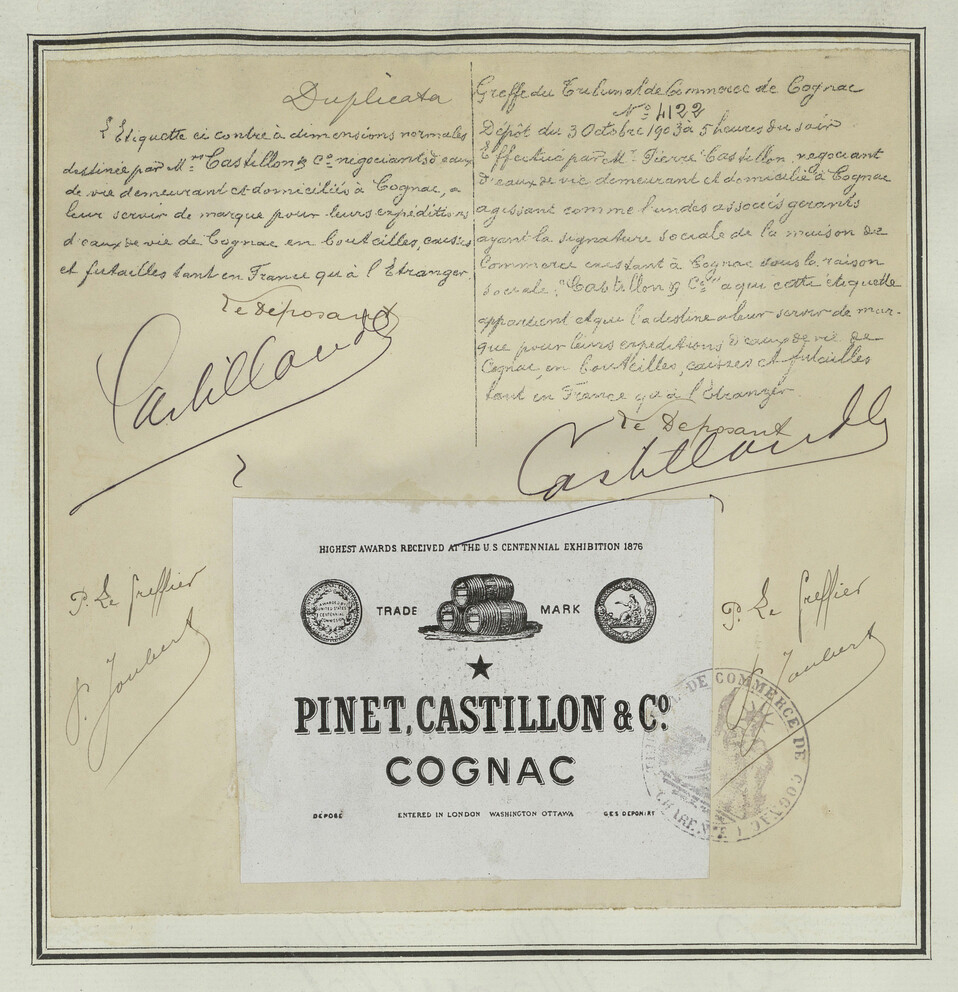 Duplicata
L'Etiquette ci contre à dimensions normales
destinée par M.rs Castillon & Co négociants d'eaux
de vie demeurant et domiciliés à Cognac, a
leur servir de marque pour leurs expéditions
d'eaux de vie de Cognac en bouteilles, caisses
et futailles tant en France qu'à l'Etranger.
Le Déposant
Castillon & Co
P. Le Greffier
P. Joubert
Greffe du Tribunal de Commerce de Cognac
No 4122
Dépôt du 3 Octobre 1903 à 5 heures du soir
Effectué par Mr Pierre Castillon, négociant
d'eaux de vie demeurant et domicilié à Cognac
agissant comme l'un des associés gérants
ayant la signature sociale de la maison de
Commerce existant à Cognac sous la raison
sociale: "Castillon & Co" a qui cette étiquette
appartient et qui l'a destine a leur servir de mar-
que pour leurs expéditions d'eaux de vie de
Cognac, en bouteilles, caisses et futailles
tant en France qu'à l'Etranger.
Le Déposant
Castillon & Co
P. Le Greffier
P. Joubert
HIGHEST AWARDS RECEIVED AT THE U.S CENTENNIAL EXHIBITION 1876
INTERNATIONAL EXHIBITION
AWARDED BY
UNITED STATES
CENTENNIAL
COMMISSION
TRADE MARK
PINET, CASTILLON & Co.
COGNAC
DÉPOSÉ ENTERED IN LONDON WASHINGTON OTTAWA GES DEPONIRT
TRIBUNAL DE COMMERCE DE COGNAC
CHARENTE